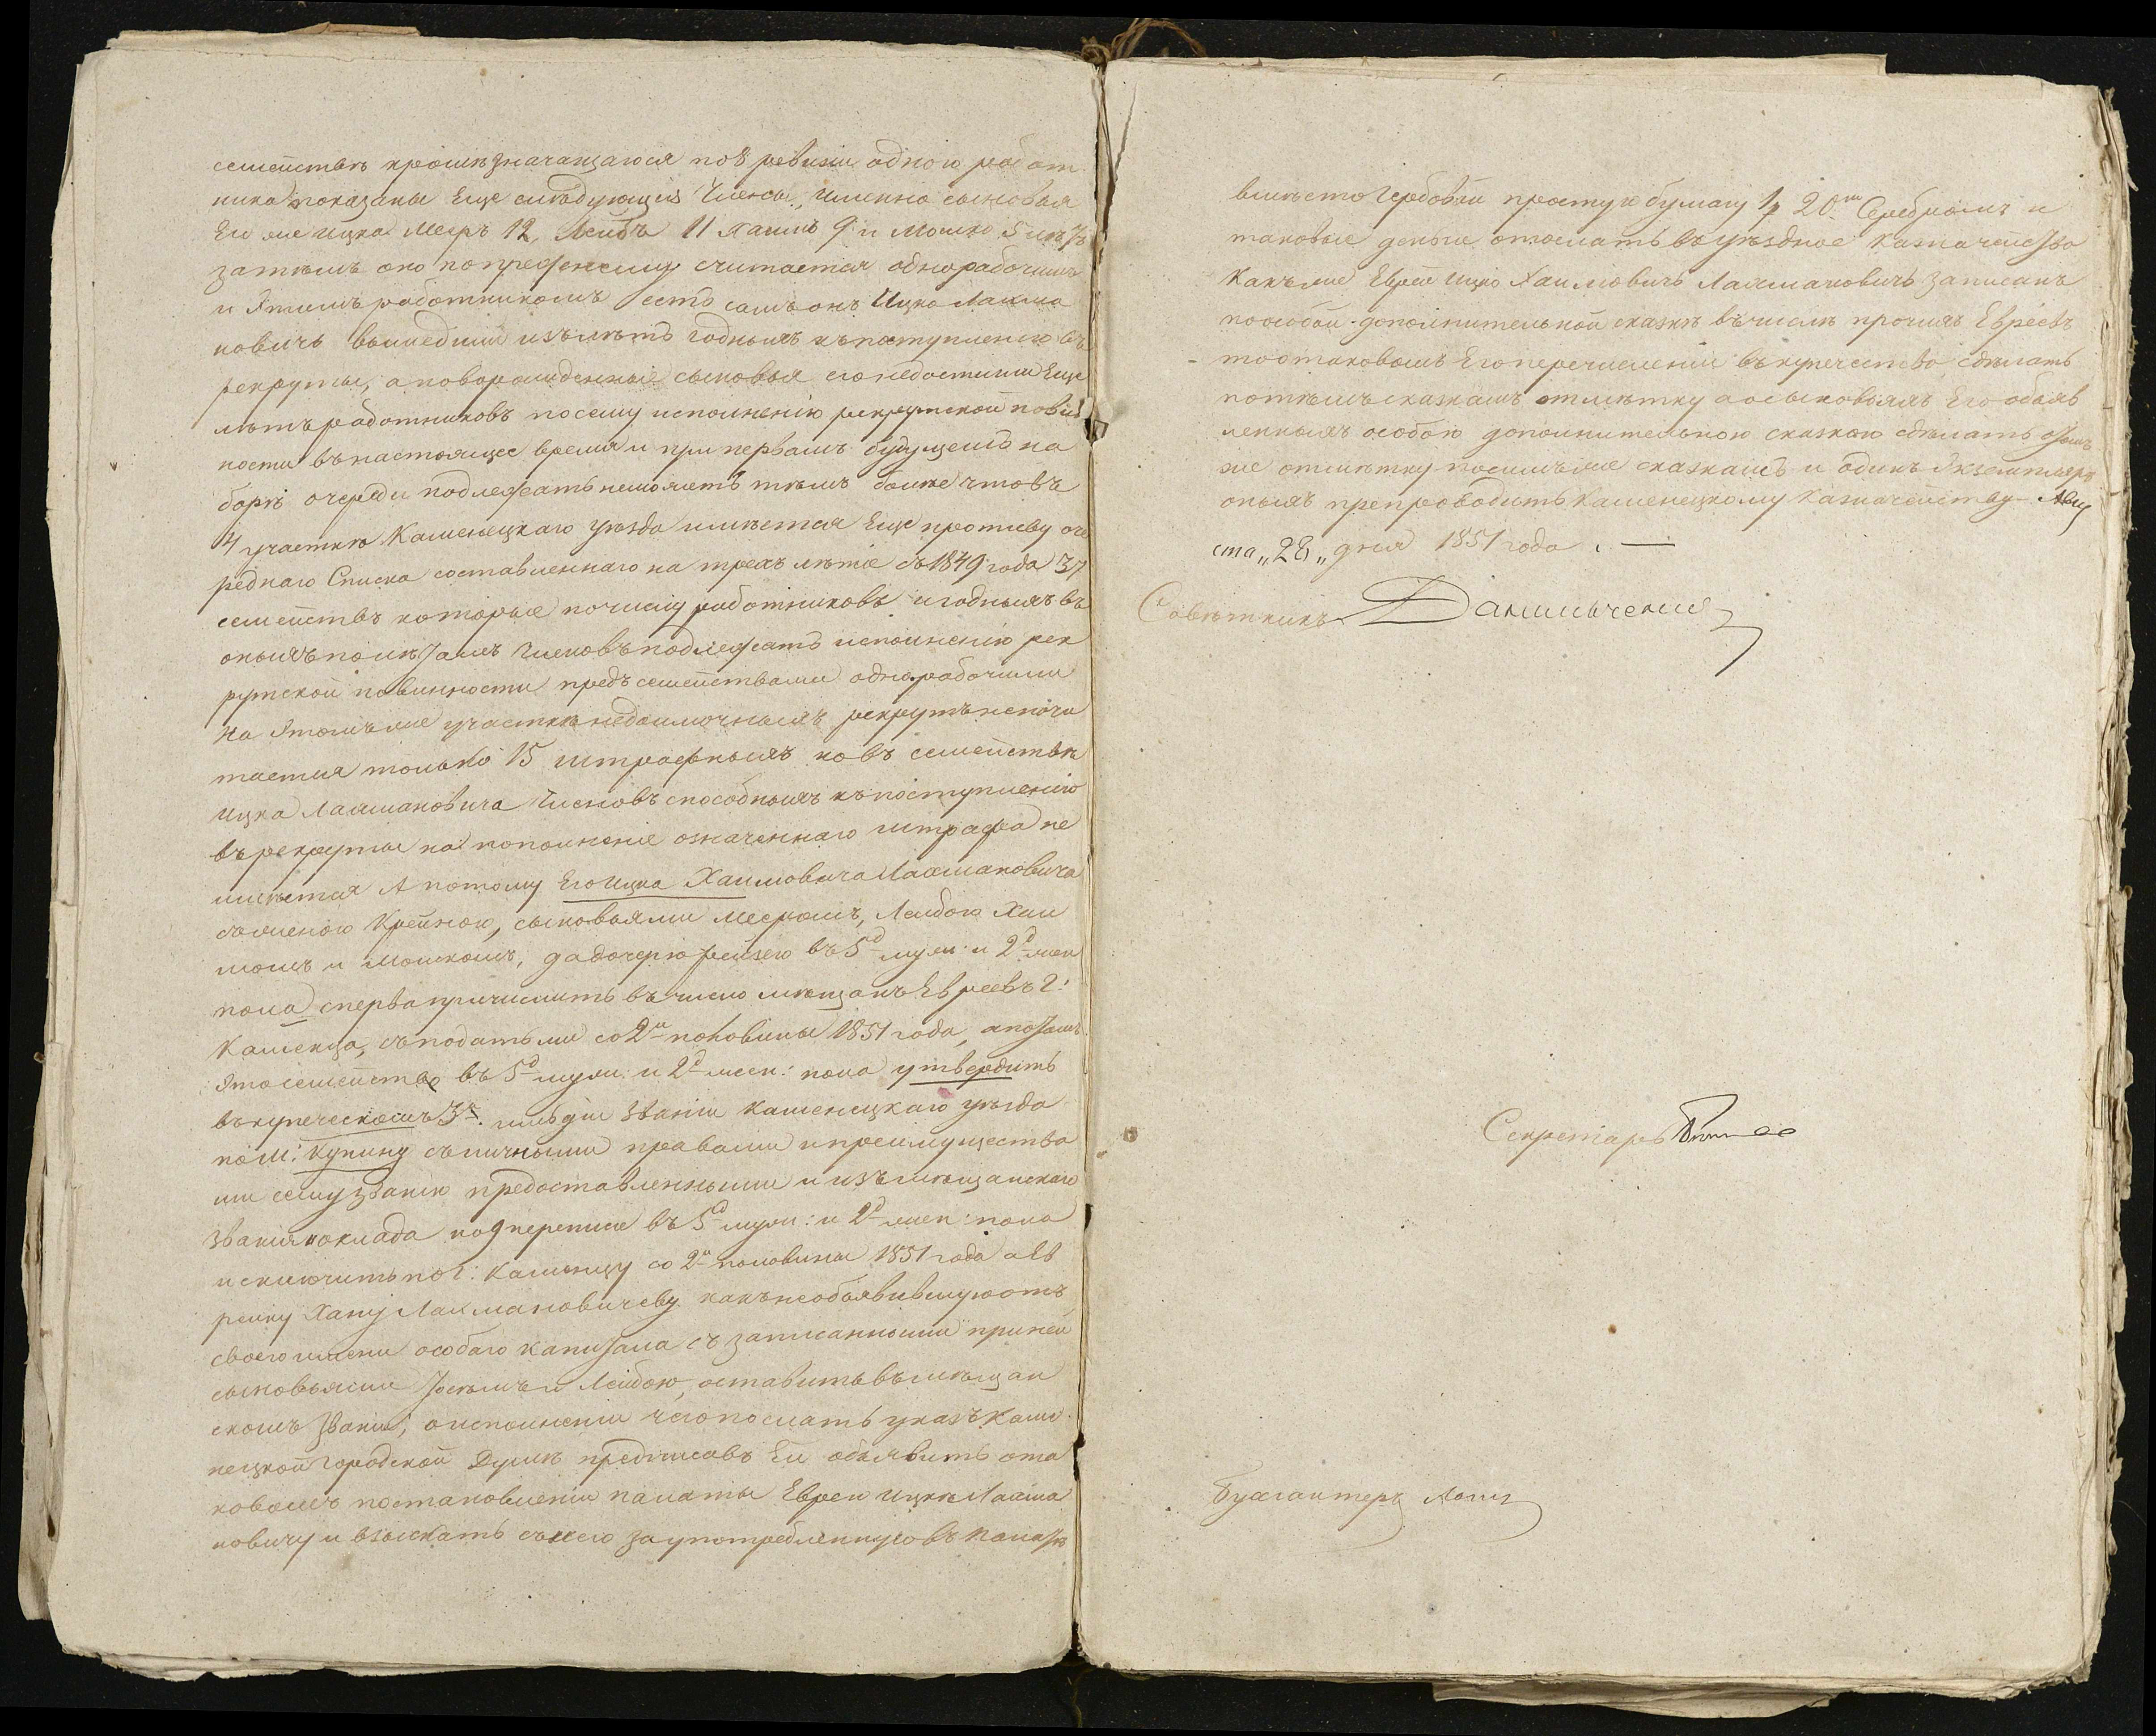 семействѣ кромѣ значащагося по 8 ревизіи одного работ
ника показаны Еще слѣдующія Члены, именно сыновья
Его же Ицка Меръ 12, Лейба 11 Хаимъ 9 и Мошко 5 лѣтъ
затѣмъ оно попрежнему считается однорабочимъ
и Этимъ работникомъ есть самъ онъ Ицко Лахма
новичь вышедшій изъ лѣтъ годныхъ къ поступленію въ
рекруты, а новорожденные сыновья его недостигли Еще
лѣтъ работниковъ посему исполненію рекрутской повин
ности въ настоящее время и при первомъ будущемъ на
борѣ очереди подлежать неможетъ тѣмъ болѣе что въ
4 участкѣ Каменецкаго уѣзда имѣется Еще противу оче
реднаго Списка составленнаго на трехъ лѣтіе съ 1849 года 37
семействъ которые по числу работниковъ и годныхъ въ
оныхъ по лѣтамъ Членовъ подлежатъ исполненію рек
рутской повинности предъ семействами однорабочими
На Этомъ же участкѣ недоимочныхъ рекрутъ несчи
тается только 15 штрафныхъ но въ семействѣ
Ицка Лахмановича Членовъ способныхъ къ поступленію
въ рекруты на пополненіе означеннаго штрафа не
имѣется А потому Его Ицка Хаимовича Лахмановича
съ женою Крейнею, сыновьями Меромъ, Лейбою Хаи
момъ и Мошкомъ, да дочерью Рейзею въ 5<sup>д</sup> муж: и 2<sup>д</sup> жен
пола сперва причислить въ число мѣщанъ Евреевъ г:
Каменца, съ податьми со 2<sup>й</sup> половины 1851 года, а потомъ
Это семейство въ 5<sup>д</sup> муж: и 2<sup>д</sup> жен: пола утвердить
въ купеческомъ 3<sup>й</sup> гильдіи званіи Каменецкаго уѣзда
по м: Купину съ личными правами и преимущества
ми сему званію предоставленными и изъ мѣщанскаго
званія оклада по 9 переписи въ 5<sup>д</sup> муж: и 2<sup>д</sup> жен: пола
исключить по г: Каменцу со 2<sup>й</sup> половины 1851 года а Ев
рейку Хану Лахмановичеву какъ необъявившую отъ
своего имени особаго капитала съ записанными при ней
сыновьями и Лейбою, оставить въ мѣщан
скомъ званіи, о исполненіи чего послать указъ Каме
нецкой городской Думѣ предписавъ Ей объявить ота
ковомъ постановленіи палаты Еврею Ицкѣ Лахма
новичу и взыскать съ него за употребленную въ Палатѣ
вмѣсто гербовой простую бумагу 1 р 20 Серебромъ и
таковые деньги отослать въ уѣздное Казначейство
Какъ же Еврей Ицко Хаимовичь Лахмановичь записанъ
по особой дополнительной сказкѣ въ числѣ прочихъ Евреевъ
то о таковомъ Его перечисленіи въ купечество сдѣлать
по тѣмъ сказкамъ отмѣтку а о сыновьяхъ Его объяв
ленныхъ особою дополнительною сказкою сдѣлать тожъ
же отмѣтку по симъ же сказкамъ и одинъ Экземпляръ
оныхъ препроводить Каменецкому Казначейству – Авгу
ста „28„ дня 1851 года. —
Совѣтникъ Данильченко
Секретарь
Бухгалтеръ